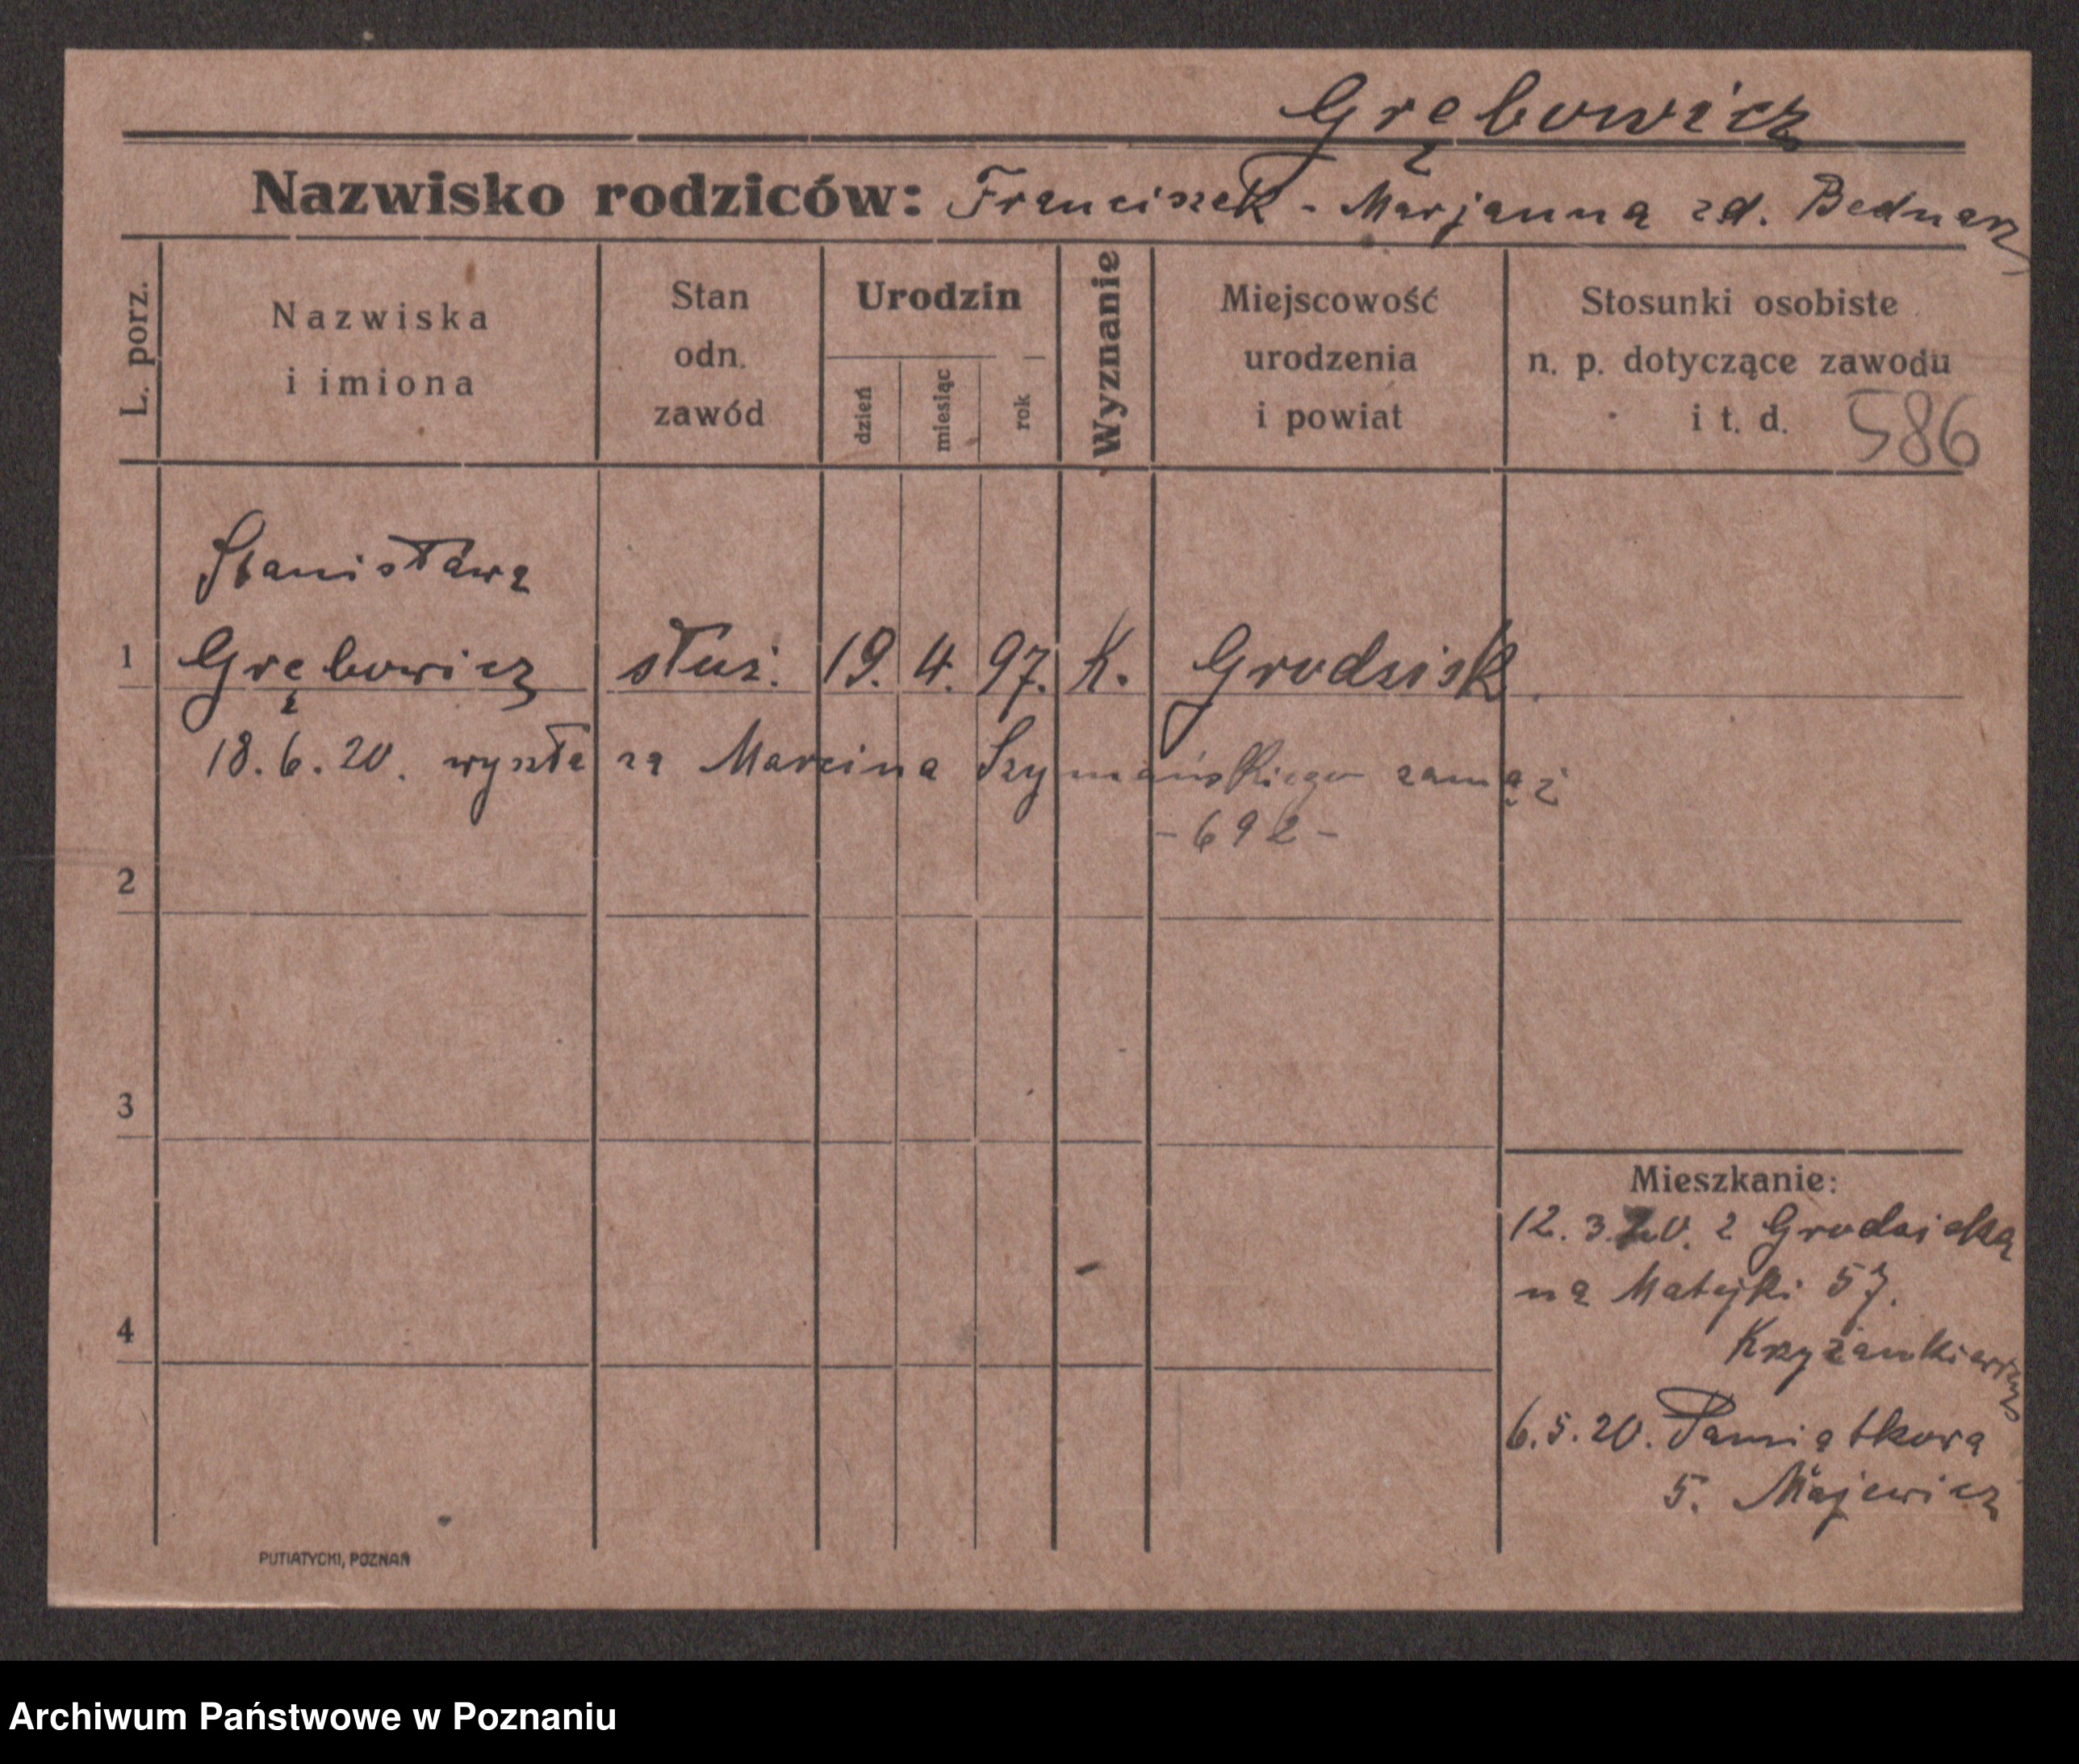 Grębowicz
Nazwisko rodziców: Franciszek - Marjanna zd. Bednarz
L. porz.
Nazwiska
i imiona
Stan
odn.
zawód
Urodzin
dzień
miesiąc
rok
Wyznanie
Miejscowość
urodzenia
i powiat
Stosunki osobiste
n. p. dotyczące zawodu
i t. d.
586
Stanisława
1 Grębowicz służ. 19. 4. 97. K. Grodzisk
18.6.20. wyszła za Marcina Szymańskiego zamąż
- 692 -
2
3
4
Mieszkanie:
12. 3. 20. z Grodziska
na Matejki 57.
6.5.20. Pamiątkowa
5. Majewicz
PUTIATYCKI, POZNAŃ
Archiwum Państwowe w Poznaniu